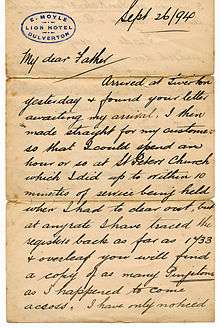 E. MOYLE
LION HOTEL
DULVERTON
Sept 26/94
My dear Father
Arrived at Tiverton
yesterday & found your letter
awaiting my arrival, I then
made straight for my customers
so that I could spend an
hour or so at St Peters Church
which I did up to within 10
minutes of service being held
when I had to clear out, but
at anyrate I have traced the
registers back as far as 1733
& overleaf you will find
a copy of as many Simptons
as I happened to come
across. I have only noticed